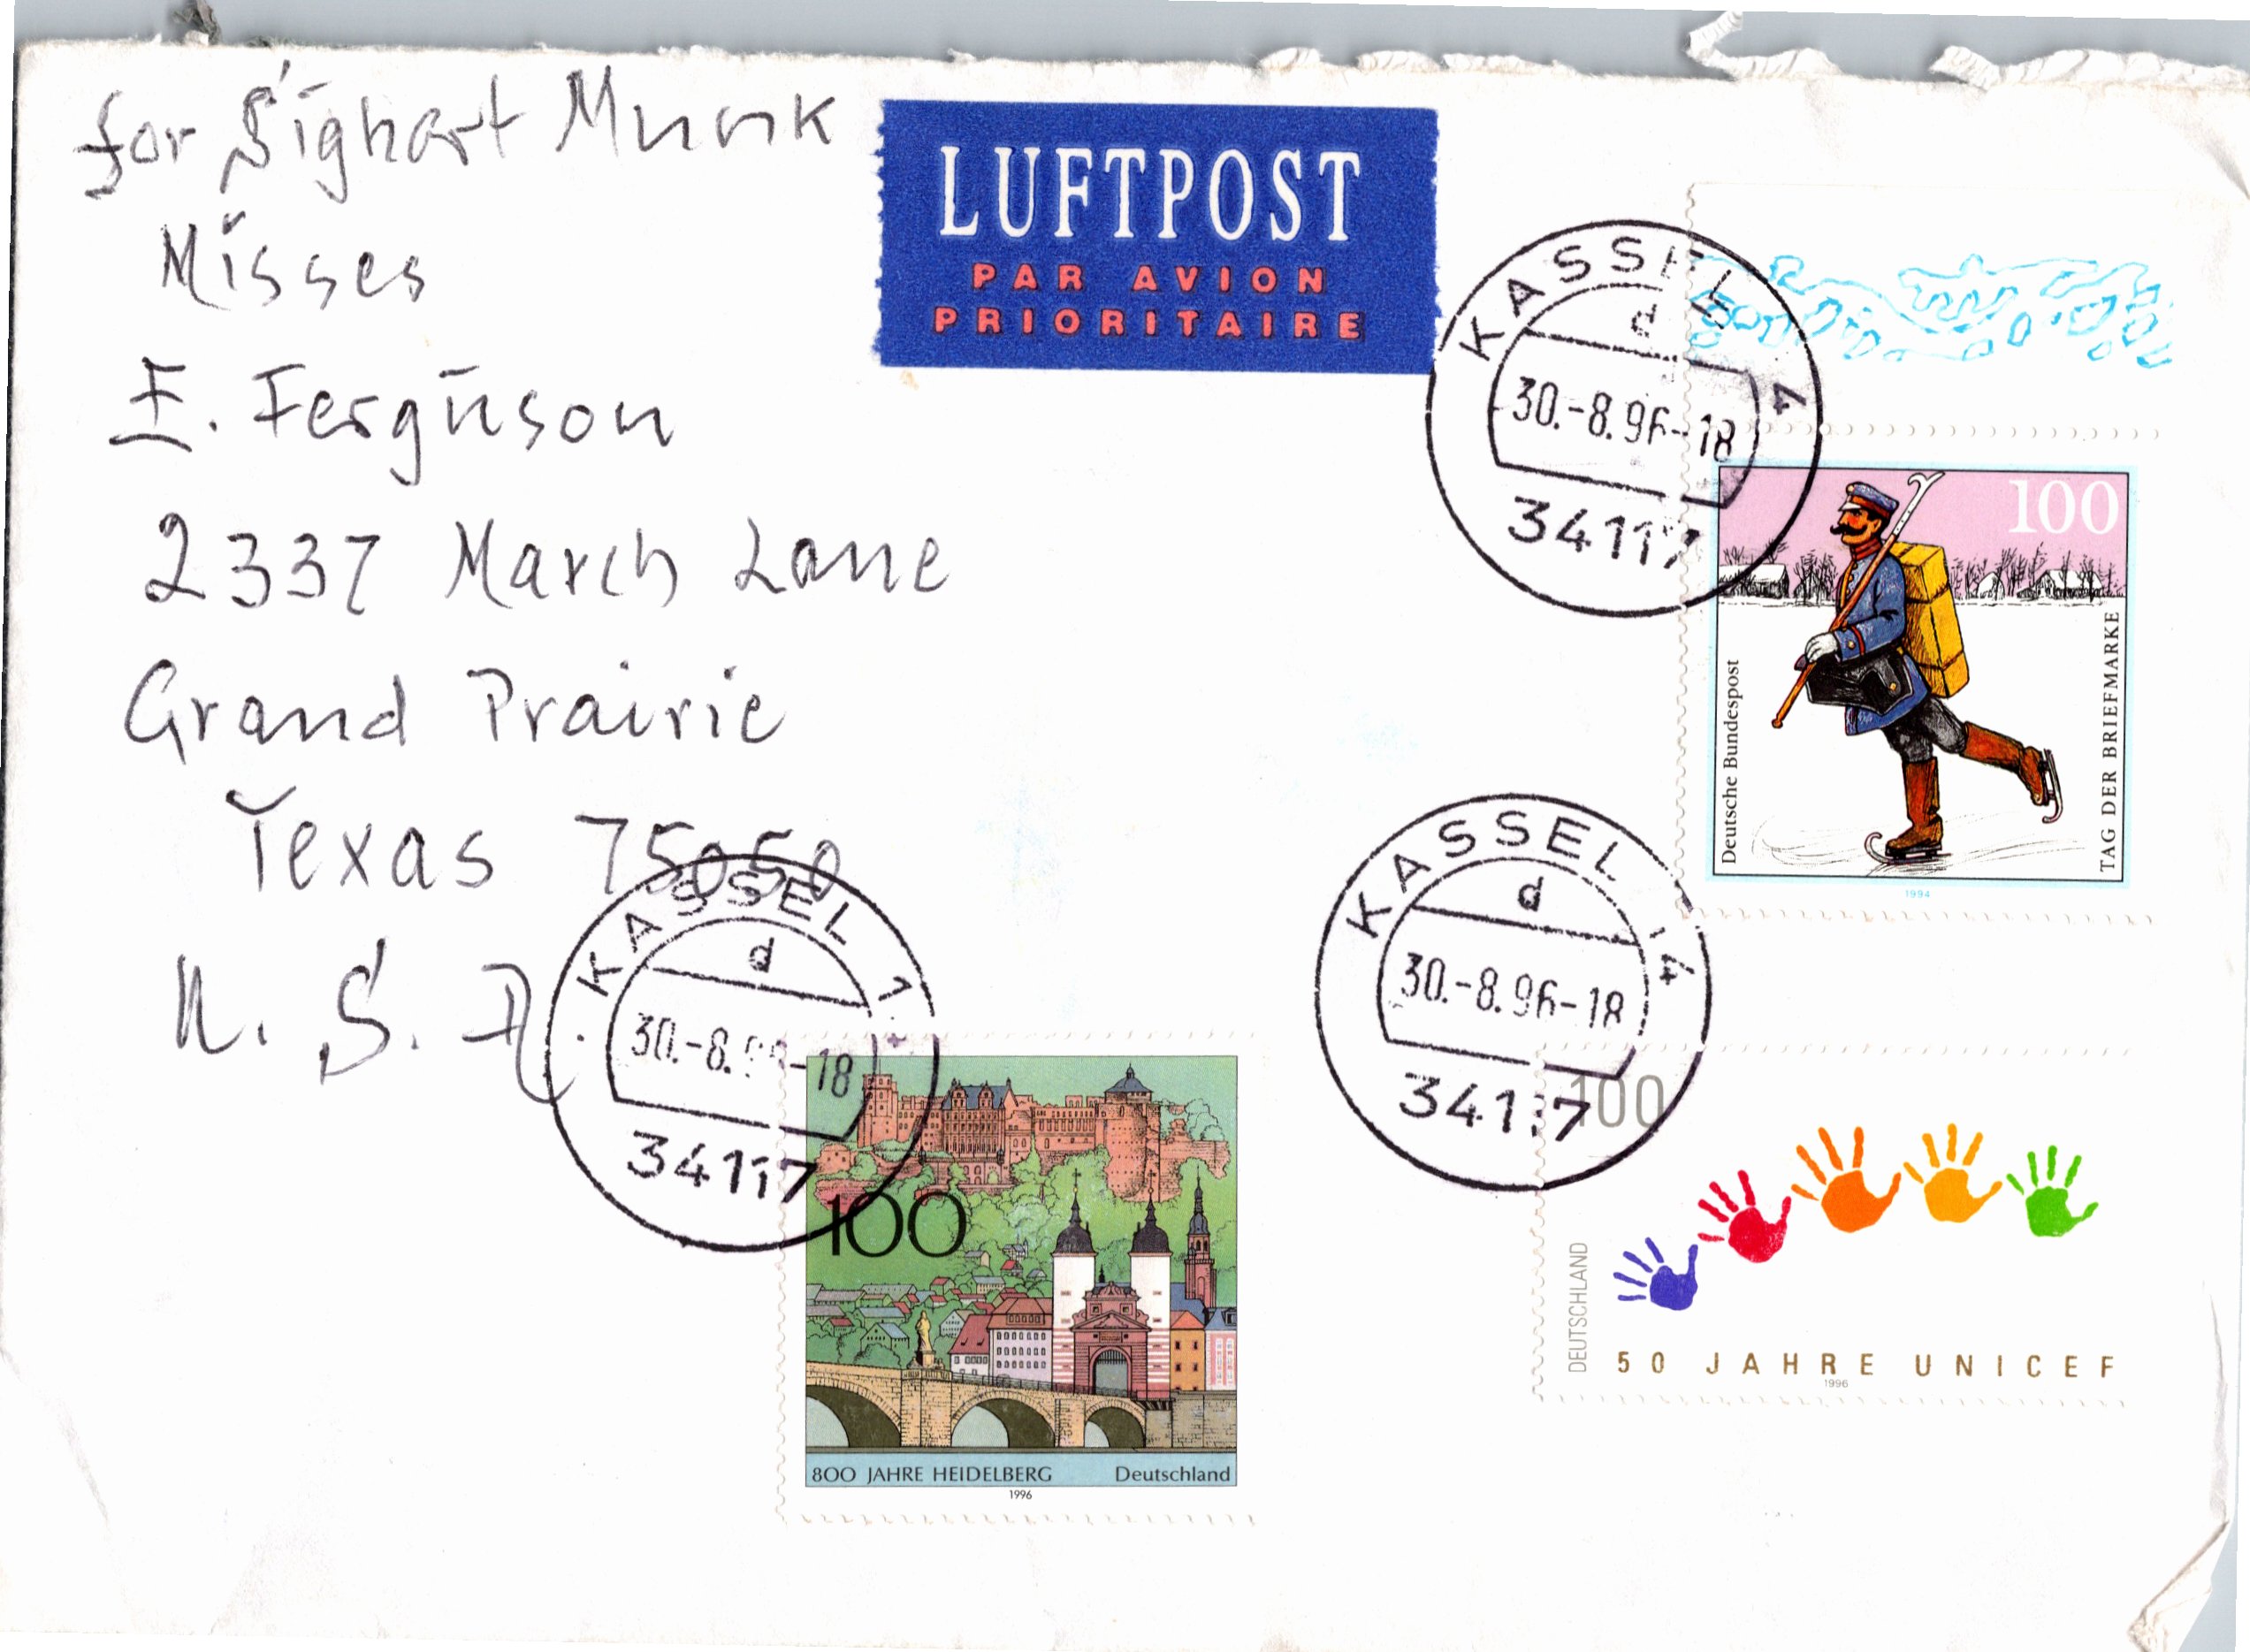 for Sighart Munk
Misses
E. Ferguson
2337 March Lane
Grand Prairie
Texas 75050
U. S. A.
LUFTPOST
PAR AVION
PRIORITAIRE
KASSEL 4
d
30.-8.96-18
34117
100
Deutsche Bundespost
TAG DER BRIEFMARKE
1994
KASSEL 14
d
30.-8.96-18
34117
100
DEUTSCHLAND
50 JAHRE UNICEF
1996
KASSEL 1
d
30.-8. -18
34117
100
800 JAHRE HEIDELBERG Deutschland
1996